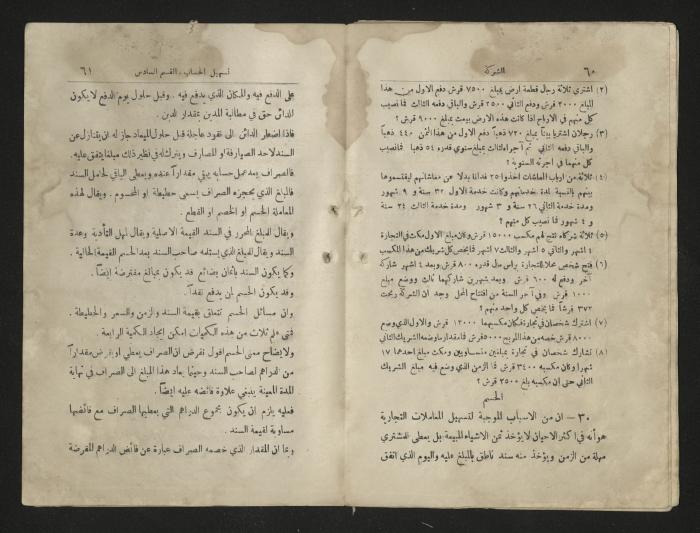 ٦٠
الشركة
(٢) اشترى ثلاثة رجال قطعة ارض بمبلغ ٧٥٠٠ قرش دفع الاول من هذا
المبلغ ٢٠٠٠ قرش ودفع الثاني ٢٥٠٠ قرش والباقي دفعه الثالث فما نصيب
كل منهم في الارباح اذا كانت هذه الارض بيعت بمبلغ ٩٠٠٠ قرش ؟
(٣) رجلان اشتريا بيتاً بمبلغ ٧٢٠ ذهباً دفع الاول من هذا الثمن ٤٤٠ ذهباً
والباقي دفعه الثاني ثم آجراه لثالث بمبلغ سنوي قدره ٥٤ ذهباً فما نصيب
كل منهما في اجرته السنوية ؟
(٤) ثلاثة من ارباب المعاشات اخذوا ٢٥ فداناً بدلا عن معاشاتهم ليقتسموها
بينهم بالنسبة لمدة خدماتهم وكانت خدمة الاول ٣٢ سنة و ٩ شهور
ومدة خدمة الثاني ٢٦ سنة و ٣ شهور ومدة خدمة الثالث ٢٤ سنة
و ٤ شهور فما نصيب كل منهم ؟
(٥) ثلاثة شركاء نتج لهم مكسب ١٥٠٠٠ قرش وكان مبلغ الاول مكث في التجارة
٤ اشهر والثاني ٥ اشهر والثالث ٧ اشهر فما يخص كل شريك من هذا المكسب
(٦) فتح شخص محلا للتجارة براس مال قدره ٨٠٠ قرش وبعد ٤ اشهر شاركه
آخر ودفع له ٦٠٠ قرش وبعد شهرين شاركهما ثالث ووضع مبلغ
١٠٠٠ قرش وفي آخر السنة من افتتاح المحل وجد ان الشركة ربحت
٣٧٢ قرشاً فما يخص كل واحد منهم ؟
(٧) اشترك شخصان في تجارة فكان مكسبهما ١٢٠٠٠ قرش والاول الذي وضع
٨٠٠٠ قرش خصه من هذا الربح ٥٠٠٠ قرش فما مقدار ما وضعه الشريك الثاني
(٨) تشارك شخصان في تجارة بمبلغين متساويين ومكث مبلغ احدهما ١٧
شهراً وكان مكسبه ٣٤٠٠ قرش فما الزمن الذي وضع فيه مبلغ الشريك
الثاني حتى ان مكسبه بلغ ٢٥٠٠ قرش ؟
الحسم
٣٠ – ان من الاسباب الموجبة لتسهيل المعاملات التجارية
هو أنه في اكثر الاحيان لا يؤخذ ثمن الاشياء المبيعة بل يعطى للمشتري
مهلة من الزمن ويؤخذ منه سند ناطق بالمبلغ عليه واليوم الذي اتفق
تسهيل الحساب . القسم السادس
٦١
على الدفع فيه والمكان الذي يدفع فيه . وقبل حلول يوم الدفع لا يكون
للدائن حق في مطالبة المدين بمقدار الدين .
فاذا اضطر الدائن الى نقود عاجلة قبل حلول الميعاد جاز له ان يتنازل عن
السند لاحد الصيارفة او للمصارف ويترك له في نظير ذلك مبلغاً يتفق عليه .
فالصراف بعد عمل حسابه يبقي مقداراً عنده ويعطى الباقي لحامل السند
فالمبلغ الذي يحجزه الصراف يسمى حطيطة او المحسوم . ويقال لهذه
المعاملة الحسم او الخصم او القطع .
ويقال للمبلغ المحرر في السند القيمة الاصلية ويقال لمهل التأدية وعدة
السند ويقال للمبلغ الذي يستلمه صاحب السند بعد الحسم القيمة الحالية .
وكما يكون السند باثمان بضائع قد يكون بمبالغ مقترضة ايضاً .
وقد يكون الحسم لمن يدفع نقداً .
وان مسائل الحسم تتعلق بقيمة السند والزمن والسعر والحطيطة .
فمتى علم ثلاث من هذه الكميات امكن ايجاد الكمية الرابعة .
ولايضاح معنى الحسم اقول نفرض ان الصراف يعطي او يقرض مقداراً
من الدراهم لصاحب السند وحينما يعاد هذا المبلغ الى الصراف في نهاية
المدة المعينة ينبغي علاوة فائضه عليه ايضاً .
فعليه يلزم ان يكون مجموع الدراهم التي يعطيها الصراف مع فائضها
مساوية لقيمة السند .
وبما ان المقدار الذي خصمه الصراف عبارة عن فائض الدراهم المقرضة